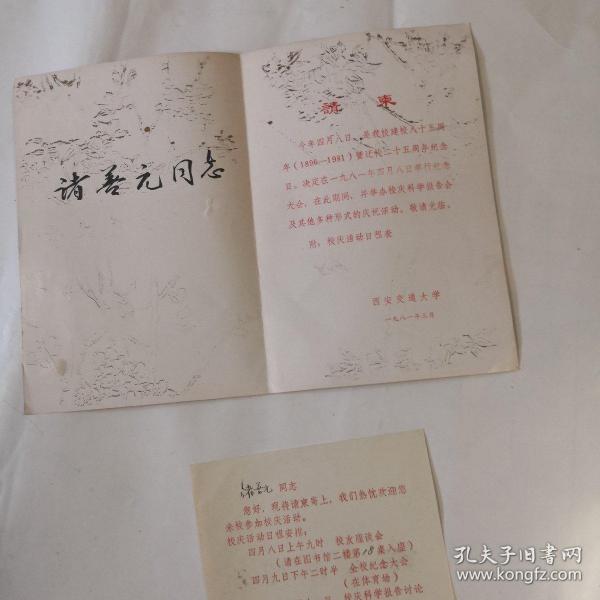 诸吾元同志
請柬
今年四月八日，是我校建校八十五周
年(1896—1981)暨迁校二十五周年纪念
日。决定在一九八一年四月八日举行纪念
大会，在此期间，并举办校庆科学报告会
及其他多种形式的庆祝活动。敬请光临。
附：校庆活动日程表
西安交通大学
一九八一年三月
诸吾元 同志
您好，现将请柬寄上，我们热忱欢迎您
来校参加校庆活动。
校庆活动日程安排：
四月八日上午九时 校友座谈会
（请在图书馆二楼第18桌入座）
四月九日下午二时半 全校纪念大会
（在体育场）
校庆科学报告讨论
孔夫子旧书网
www.kongfz.com